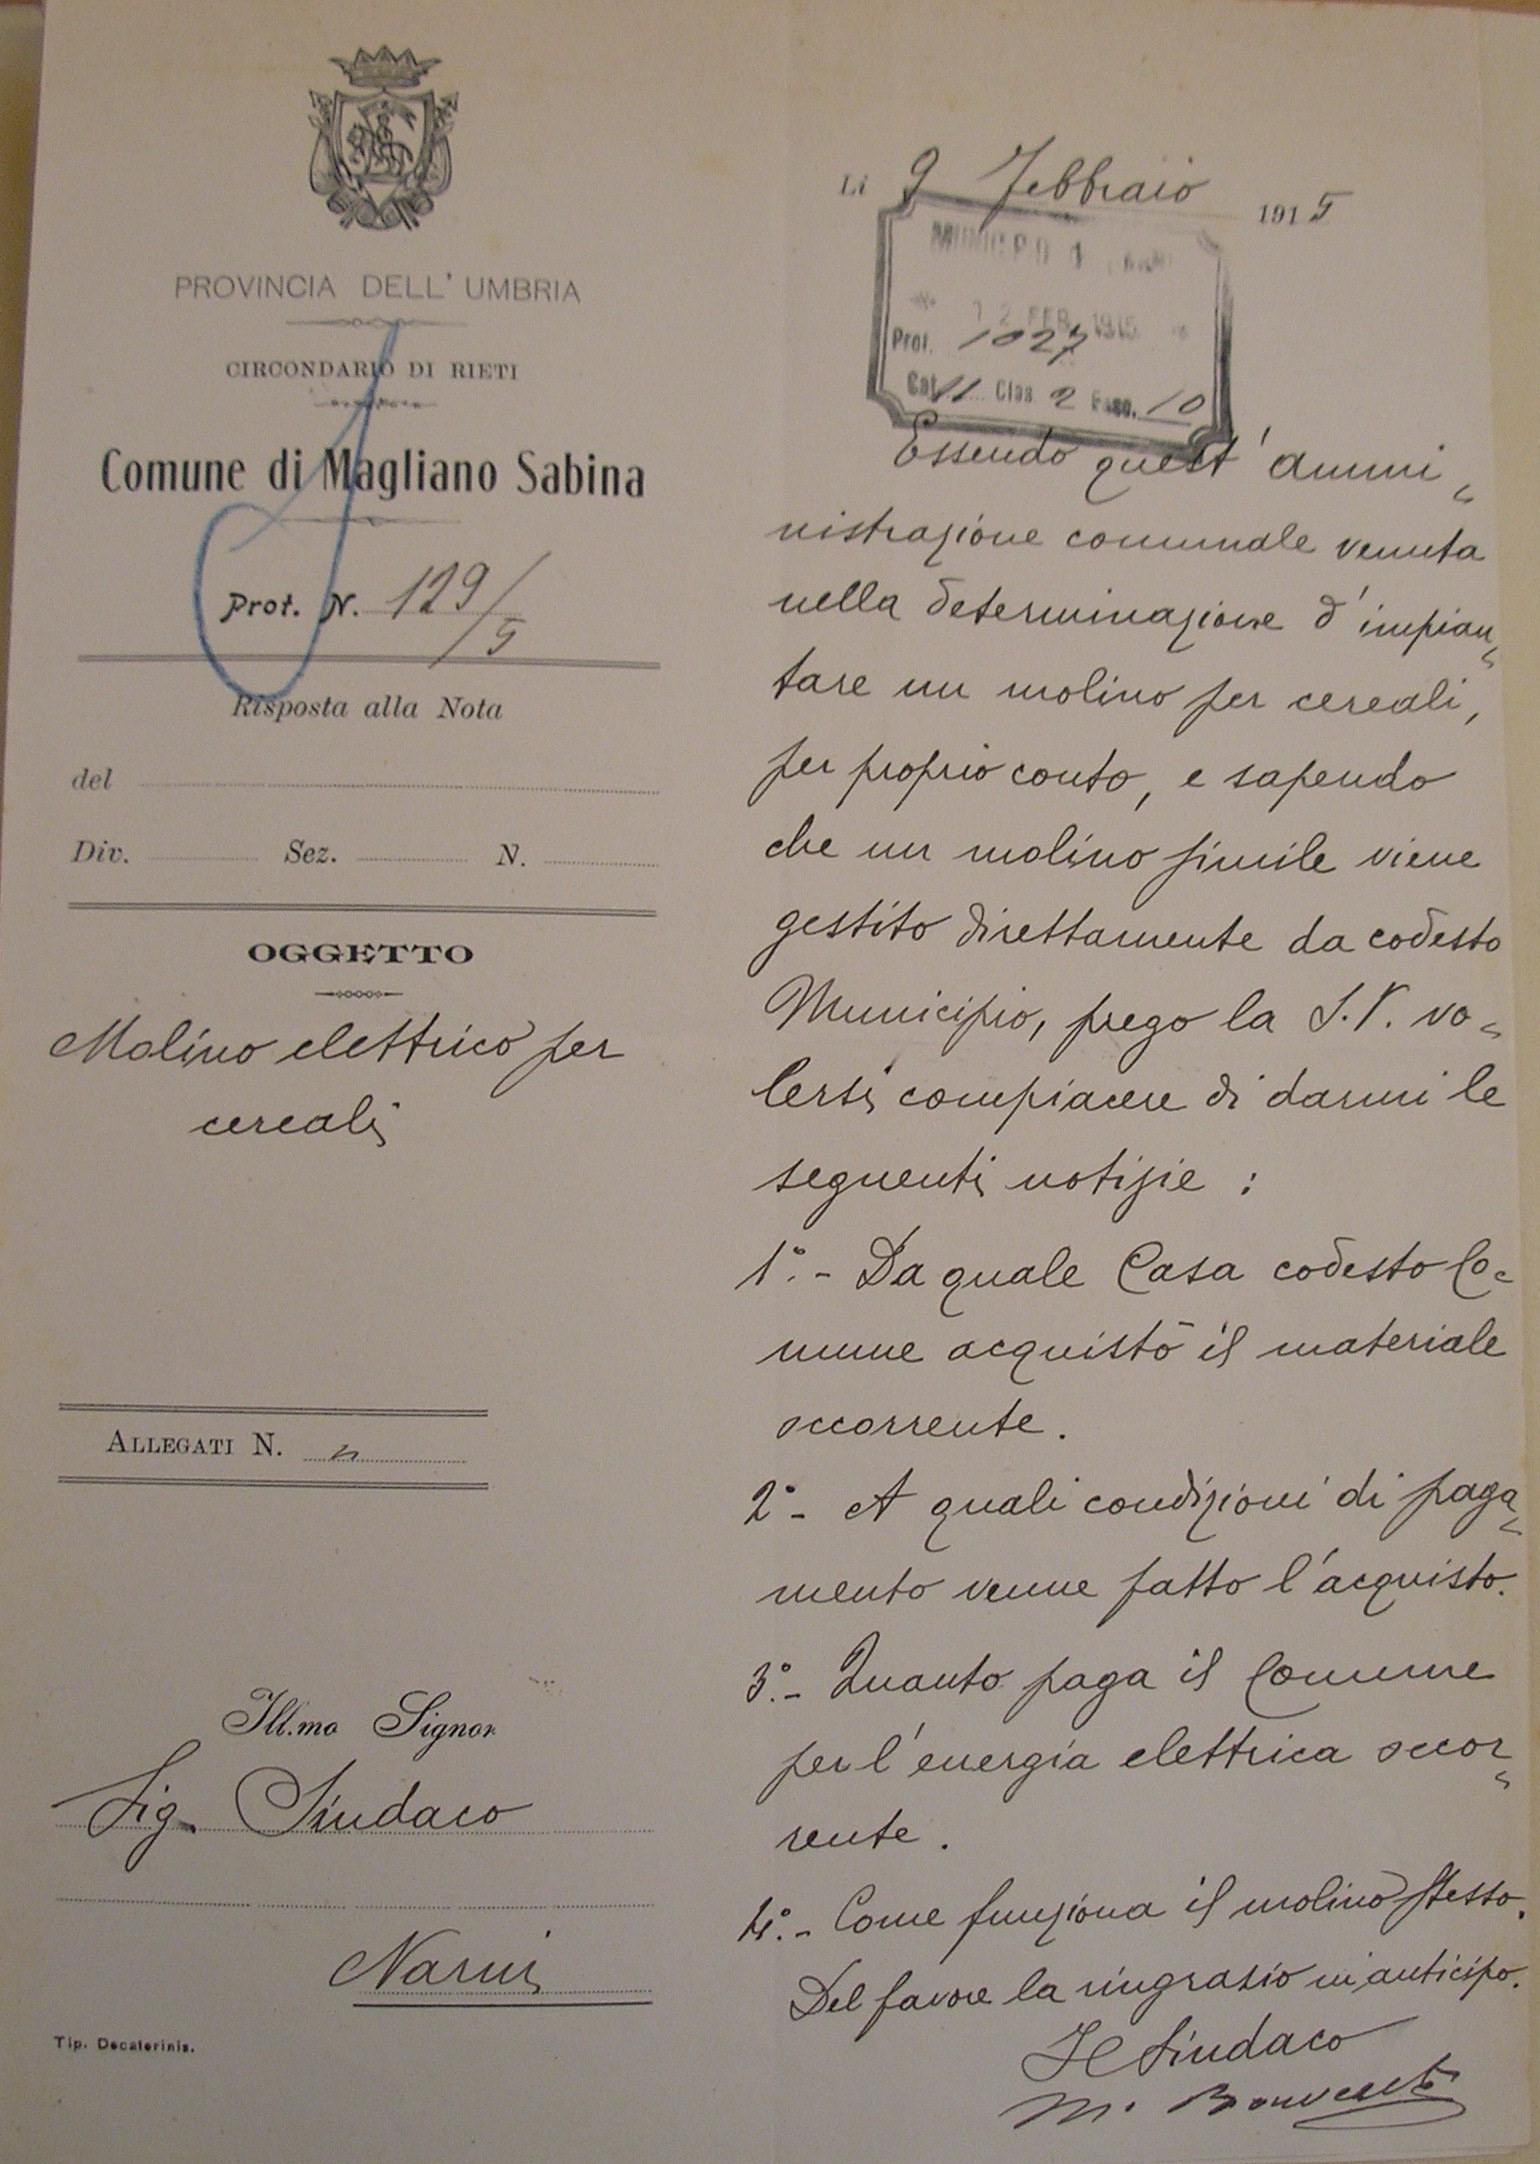 PROVINCIA DELL' UMBRIA
CIRCONDARIO DI RIETI
Comune di Magliano Sabina
Prot. N. 129/5
Risposta alla Nota
del
Div. Sez. N.
OGGETTO
Molino elettrico per
cereali
ALLEGATI N. n
Ill.mo Signor
Sig. Sindaco
Narni
Tip. Decaterinis.
Li 9 Febbraio 1915
MUNICIPIO
12 FEB. 1915
Prot. 1027
Cat. 11 Clas. 2 Fasc. 10
Essendo quest'ammi„
nistrazione comunale venuta
nella determinazione d'impian„
tare un molino per cereali,
per proprio conto, e sapendo
che un molino simile viene
gestito direttamente da codesto
Municipio, prego la S.V. vo„
lersi compiacere di darmi le
seguenti notizie :
1°.- Da quale Casa codesto Co„
mune acquistò il materiale
occorrente.
2°- A quali condizioni di paga„
mento venne fatto l'acquisto.
3°.- Quanto paga il Comune
per l'energia elettrica occor„
rente.
4°.- Come funziona il molino stesso.
Del favore la ringrazio in anticipo.
Il Sindaco
M.